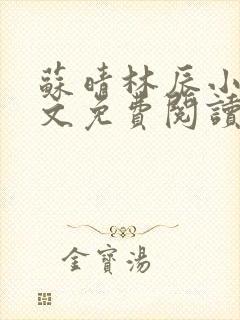 蘇晴林辰小
文免費閱讀
金寶湯